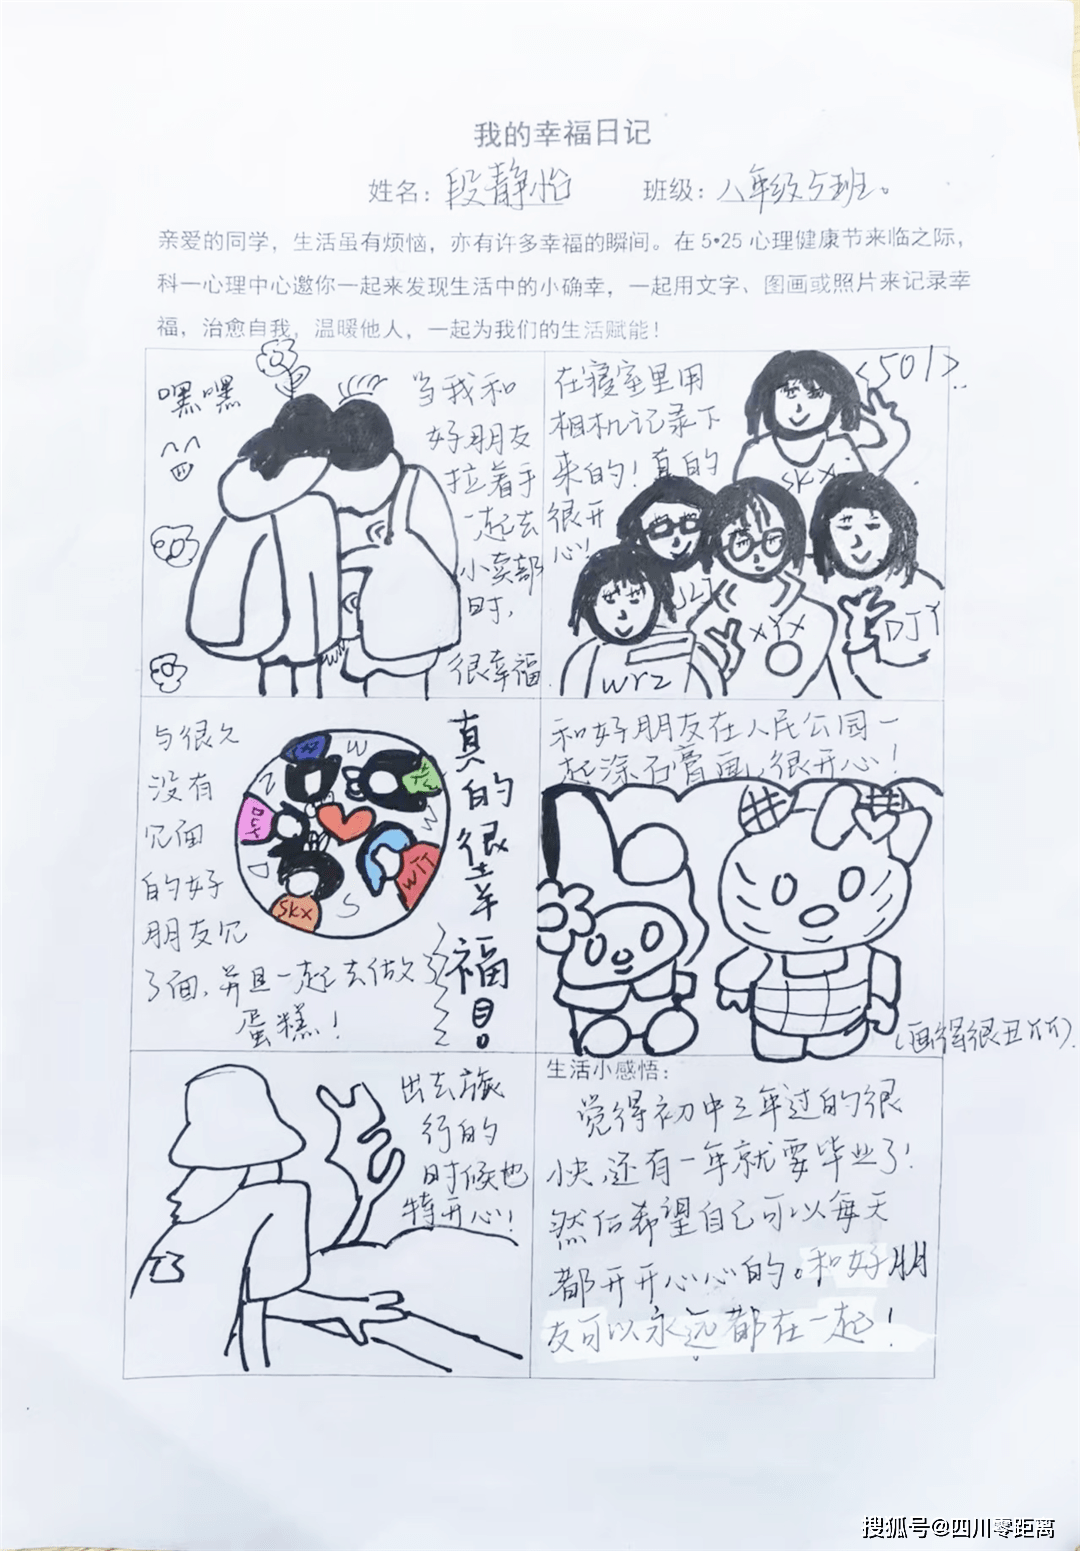 我的幸福日记
姓名：段静怡 班级：八年级5班。
亲爱的同学，生活虽有烦恼，亦有许多幸福的瞬间。在5•25心理健康节来临之际，
科一心理中心邀你一起来发现生活中的小确幸，一起用文字、图画或照片来记录幸
福，治愈自我，温暖他人，一起为我们的生活赋能！
嘿嘿
当我和
好朋友
拉着手
一起去
小卖部
时，
很幸福
在寝室里用
相机记录下
来的！真的
很开
心！
<501>
SKX
JLJ
XYX
DJY
WYZ
与很久
没有
见面
的好
朋友见
了面，并且一起去做了
蛋糕！
真
的
很
幸
福
！
W
Z
D
S
W
SKX
WJT
和好朋友在人民公园一
起涂石膏画，很开心！
（画得很丑
出去旅
行的
时候也
特开心！
生活小感悟：
觉得初中三年过的很
快，还有一年就要毕业了！
然后希望自己可以每天
都开开心心的。和好朋
友可以永远都在一起！
搜狐号@四川零距离